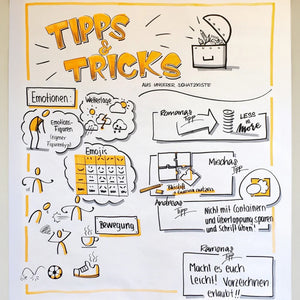 TIPPS
&
TRICKS
AUS UNSERER SCHATZKISTE
Emotionen:
Wetterlage
Emotions-
Figuren
Emojis
Bewegung
Ramonas
Tipp
LESS
is
more
Mischas
Tipp
Andreas
Tipp
Nicht mit Containern
und Überlappung sparen
und Schrift üben!
Ramonas
Tipp
Macht es euch
leicht! Vorzeichnen
erlaubt!!